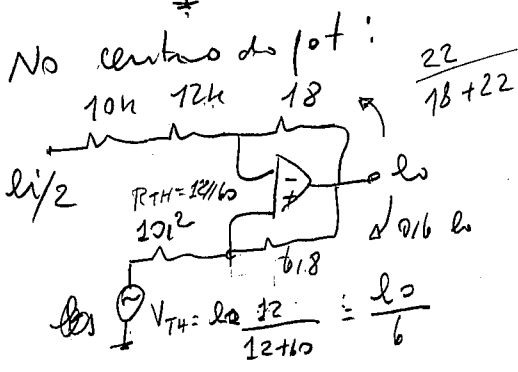 No centro do pot:
22
18+22
10k 12k 18
ei/2
RTH=12//60
10,2
eo
0,6 eo
6,8
VTH= eo 12 = eo
12+60 6